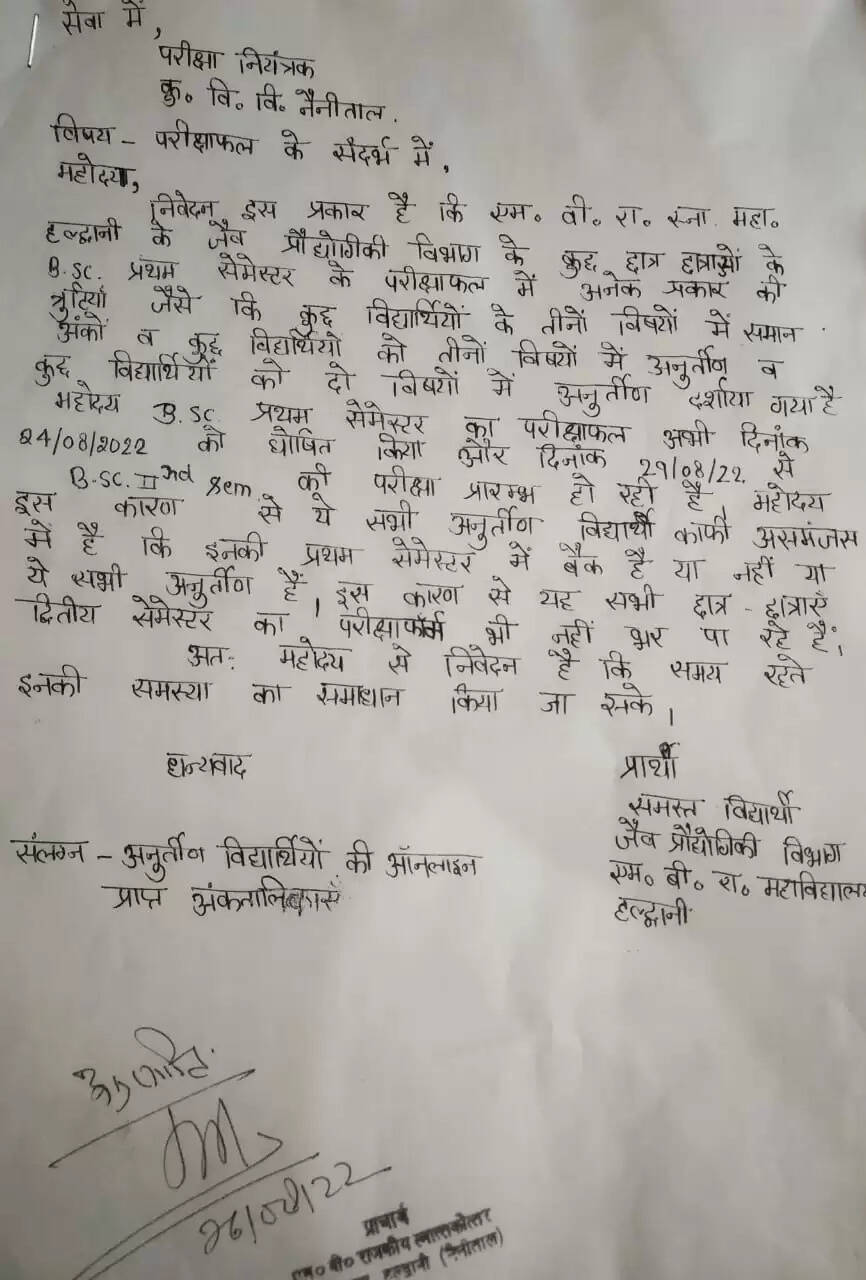 सेवा में,
परीक्षा नियंत्रक
कु० वि० वि० नैनीताल.
विषय - परीक्षाफल के संदर्भ में,
महोदय,
निवेदन इस प्रकार है कि एम. वी. रा. स्ना. महा.
हल्द्वानी के जैव प्रौद्योगिकी विभाग के कुछ छात्र छात्राओं के
B.Sc. प्रथम सेमेस्टर के परीक्षाफल में अनेक प्रकार की
त्रुटियाँ जैसे कि कुछ विद्यार्थियों के तीनों विषयों में समान
अंकों व कुछ विद्यार्थियों को तीनों विषयों में अनुर्तीण व
कुछ विद्यार्थियों को दो विषयों में अनुर्तीण दर्शाया गया है
महोदय B.Sc. प्रथम सेमेस्टर का परीक्षाफल अभी दिनांक
24/08/2022 को घोषित किया और दिनांक 29/08/22 से
B.Sc. IInd Sem. की परीक्षा प्रारम्भ हो रही है, महोदय
इस कारण से ये सभी अनुर्तीण विद्यार्थी काफी असमंजस
में है कि इनकी प्रथम सेमेस्टर में बैक है या नहीं या
ये सभी अनुर्तीण हैं। इस कारण से यह सभी छात्र - छात्राएँ
द्वितीय सेमेस्टर का परीक्षाफॉर्म भी नहीं भर पा रहे हैं।
अतः महोदय से निवेदन है कि समय रहते
इनकी समस्या का समाधान किया जा सके।
धन्यवाद
प्रार्थी
समस्त विद्यार्थी
जैव प्रौद्योगिकी विभाग
एम० बी० रा० महाविद्यालय
हल्द्वानी
संलग्न - अनुर्तीण विद्यार्थियों की ऑनलाइन
प्राप्त अंकतालिकाएँ
26/08/22
प्राचार्य
एम० बी० राजकीय स्नातकोत्तर
हल्द्वानी (नैनीताल)